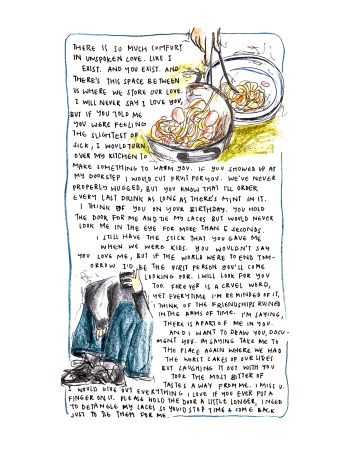 THERE IS SO MUCH COMFORT
IN UNSPOKEN LOVE. LIKE I
EXIST. AND YOU EXIST. AND
THERE'S THIS SPACE BETWEEN
US WHERE WE STORE OUR LOVE.
I WILL NEVER SAY I LOVE YOU,
BUT IF YOU TOLD ME
YOU WERE FEELING
THE SLIGHTEST OF
SICK, I WOULD TURN
OVER MY KITCHEN TO
MAKE SOMETHING TO WARM YOU. IF YOU SHOWED UP AT
MY DOORSTEP I WOULD CUT FRUIT FOR YOU. WE'VE NEVER
PROPERLY HUGGED, BUT YOU KNOW THAT I'LL ORDER
EVERY LAST DRINK AS LONG AS THERE'S MINT IN IT.
I THINK OF YOU ON YOUR BIRTHDAY. YOU HOLD
THE DOOR FOR ME AND TIE MY LACES BUT WOULD NEVER
LOOK ME IN THE EYE FOR MORE THAN 6 SECONDS.
I STILL HAVE THE STICK THAT YOU GAVE ME
WHEN WE WERE KIDS. YOU WOULDN'T SAY
YOU LOVE ME, BUT IF THE WORLD WERE TO END TOM-
ORROW I'D BE THE FIRST PERSON YOU'LL COME
LOOKING FOR. I WILL LOOK FOR YOU
TOO. FOREVER IS A CRUEL WORD,
YET EVERYTIME I'M REMINDED OF IT,
I THINK OF THE FRIENDSHIPS RUINED
IN THE ARMS OF TIME. I'M SAYING,
THERE IS A PART OF ME IN YOU.
AND I WANT TO DRAW YOU, DOCU-
MENT YOU. IM SAYING TAKE ME TO
THE PLACE AGAIN WHERE WE HAD
THE WORST CAKES OF OUR LIVES
BUT LAUGHING IT OUT WITH YOU
TOOK THE MOST BITTER OF
TASTES AWAY FROM ME. I MISS U.
I WOULD GIVE OUT EVERYTHING I LOVE IF YOU EVER PUT A
FINGER ON IT. PLEASE HOLD THE DOOR A LITTLE LONGER, I NEED
TO DETANGLE MY LACES SO YOU'D STOP TIME & COME BACK
JUST TO TIE THEM FOR ME.